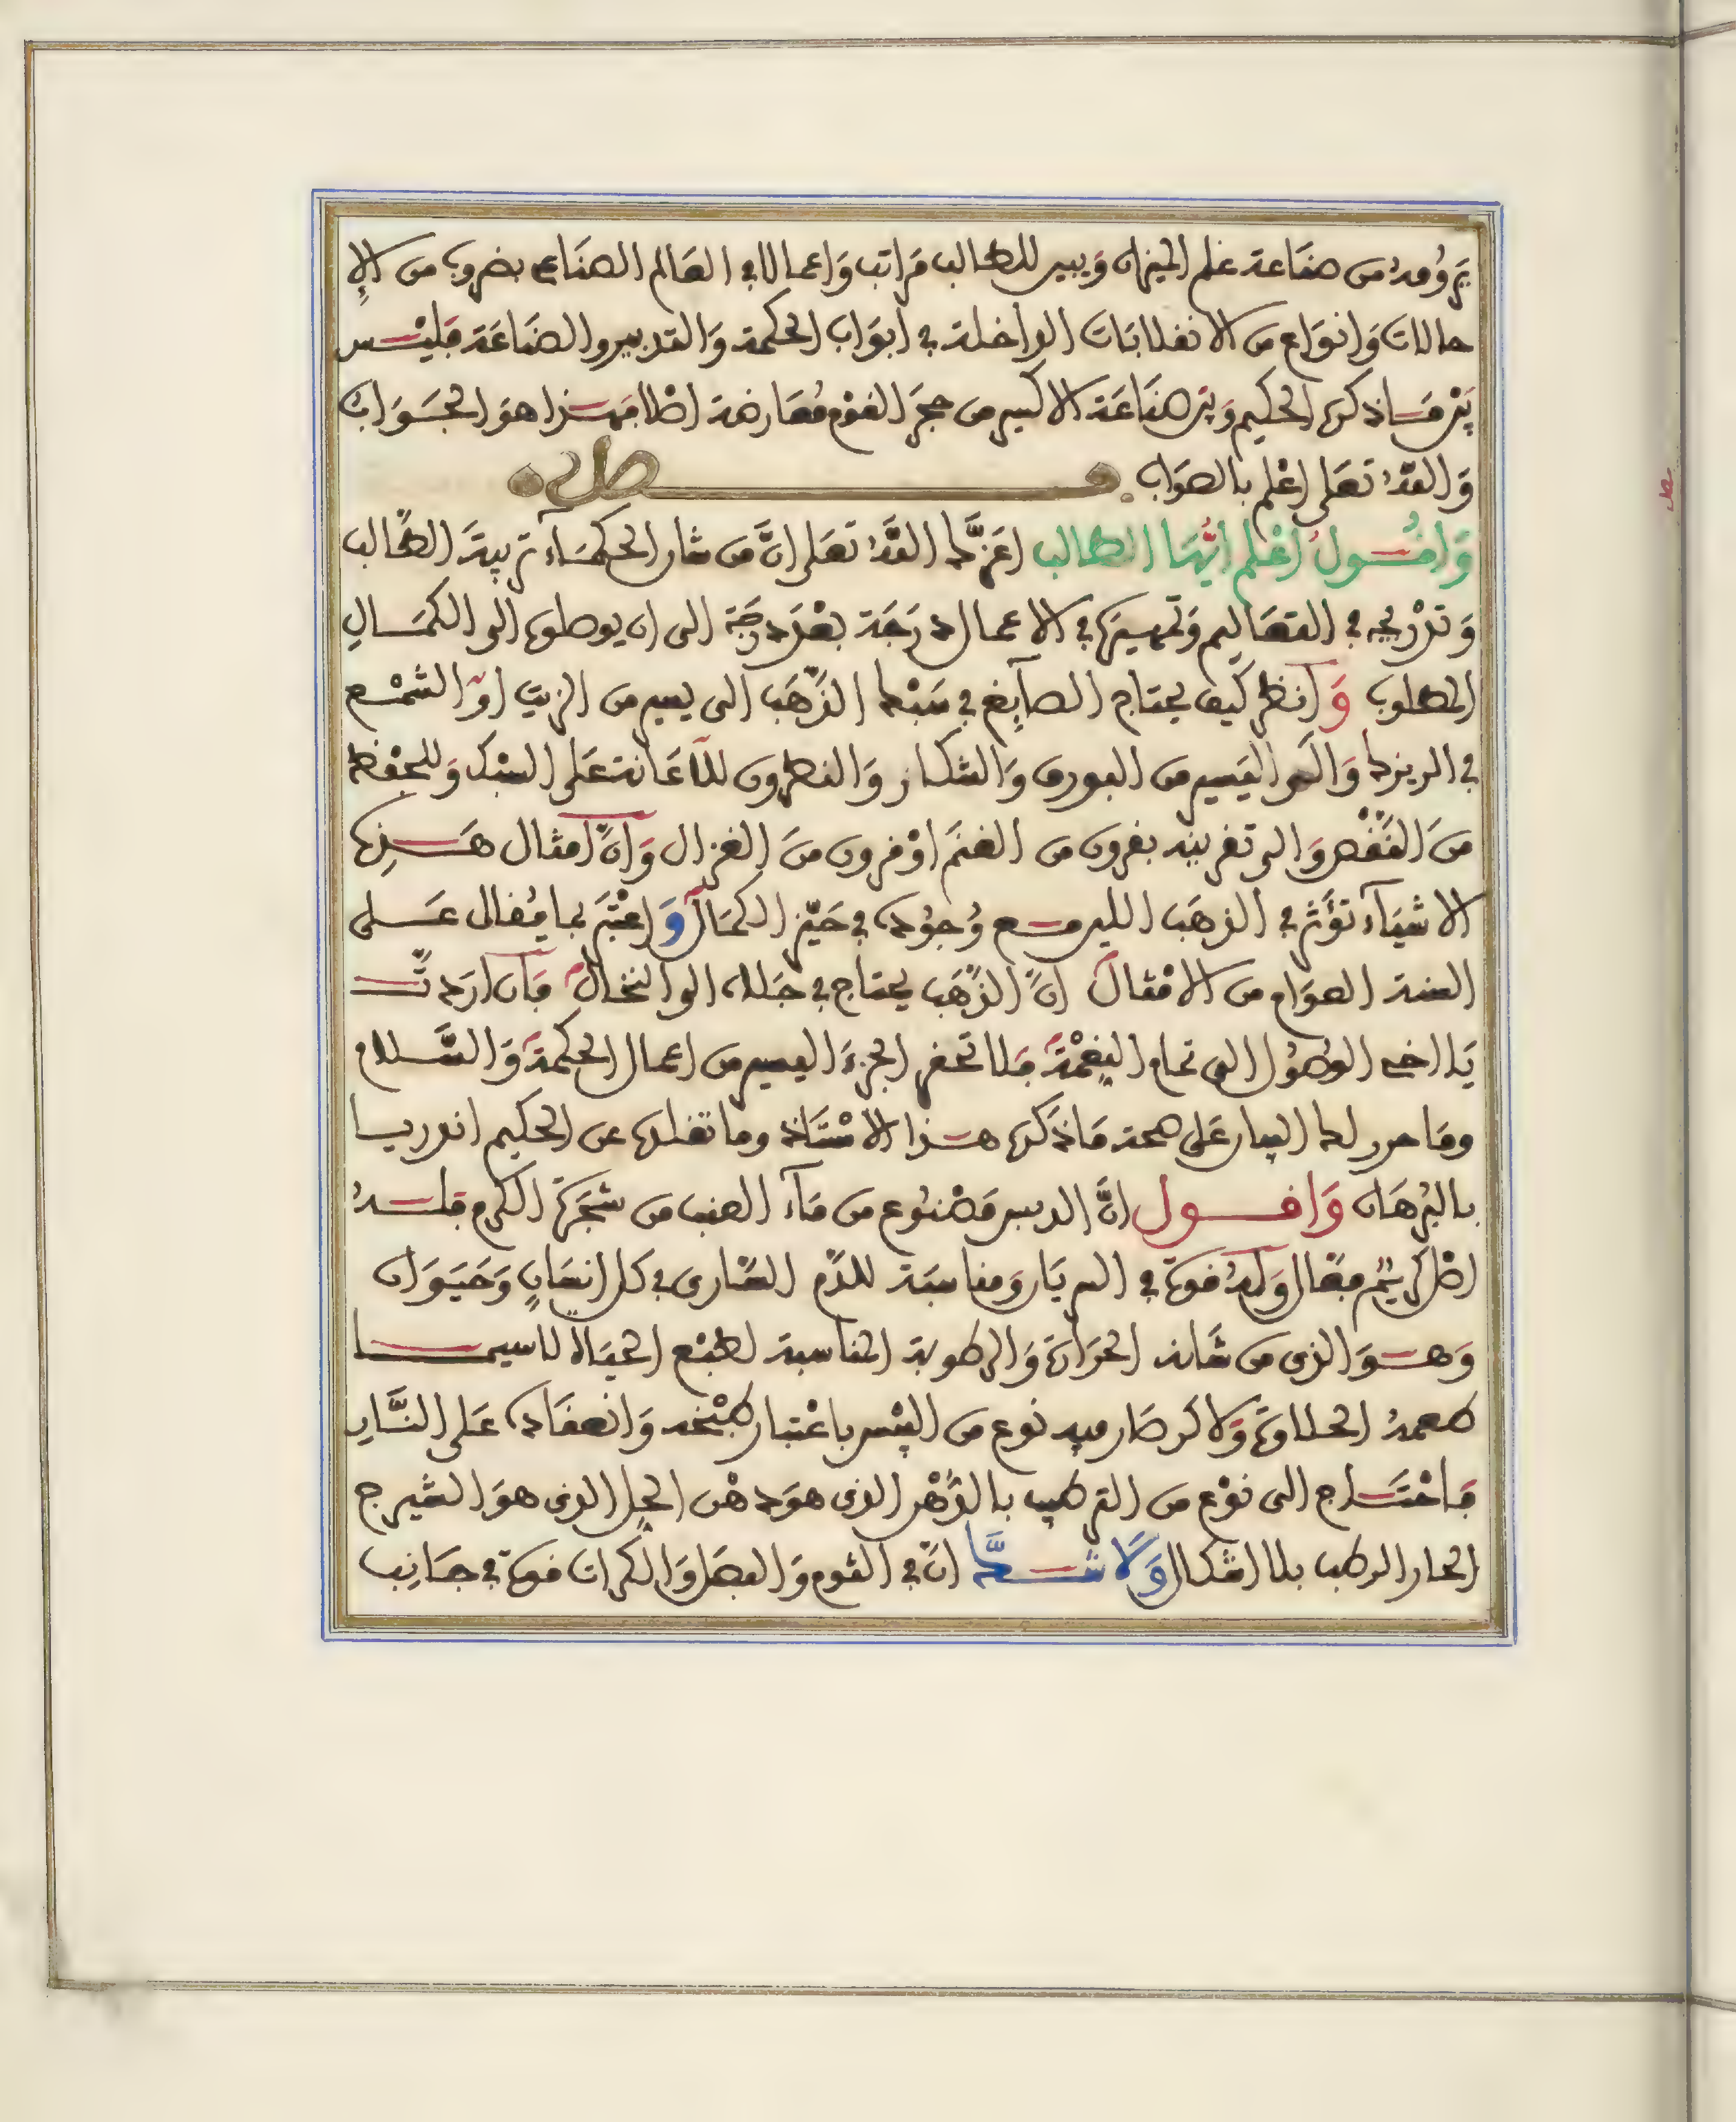 يرومه من صناعة علم الميزان وَيبين للطالب مَراتب وَاعمالا في العَالم الصنَاعي بضروب من الاِ
حالات وَانوَاع من الانفلابَات الداخلة في ابوَاب الحكمة وَالتدبير والصَناعَة فليْس
بيْن مَا ذكره الحكيم وَبيْن صنَاعَة الاكسير من حجرَ القوْم مُعَارضة اصْلا فهذا هوَ الجَوَاب
وَاللهُ تعَلى اعْلم بالصوَاب فصل
وَاقُول اعْلم ايُّهَا الطالب اعَزَّك اللهُ تعَلى انَّ من شان الحكمَاء تربيَة الطَّالب
وَتدْريجه في التعَاليم وَتمهيره في الاعمال درَجَة بعْدَ درَجَة الى ان يوصلوه الى الكمَال
المطلوب وَانظر كيف يحتاج الصآيغ في سَبْك الذّهَب الى يسير من الزيت اوْ الشمْع
في الريزك وَالى اليَسير من البورق وَالشكار وَالنطرون للاعَانة عَلى السبْك وَللحفْظ
منَ النّقْص وَالى تغريبه بقرون من الغنَم اوْ قرون منَ الغزال وَانّ امثال هَذه
الاشيَآء تؤَثر في الذهَب اللين مع وُجوُده في حَيّز الكمَال وَاعْتبرْ بما يُقال عَلى
السنة العوَام من الامْثال انّ الذّهَب يحتاج في جَلاه الى النخال فان ارَدتَّ
يَا اخي الوصُول الى تمام النِعْمَة فلا تحقر الجزءَ اليسير من اعمال الحكمَة وَالسَّلام
ومَا حرر لك البيان عَلى صحة مَا ذكره هذا الاسْتاذ وما نقله عن الحكيم اندريا
بالبُرهَان وَاقول انَّ الدبس مَصْنوُع من مَآء العنب من شجَرَة الكرم فلهُ
اصْل كريْم فعّال وَلهُ قوة في السريَان وَمناسبَة للدّم السَّارى في كل انسَانٍ وَحَيَوَان
وَهوَ الذى من شَانه الحرَارَة وَالرطوبة المناسبة لطبْع الحيَاة لاسيما
طعمهُ الحلاوَة وَلاكن صَار فيه نوع من اليبْس باعْتبار طبْخه وَانعقاده عَلى النَّار
فاحْتَاج الى نوْع من الترطيب بالدُّهْن الذى هوَ دهْن الحِل الذى هوَ الشيرج
الحار الرطب بلا اشكال وَلا شَكَّ انّ في الثوم وَالبصَل وَالكرات قوة في جَانِب